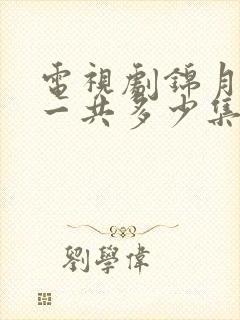 電視劇錦月
一共多少集
劉學偉